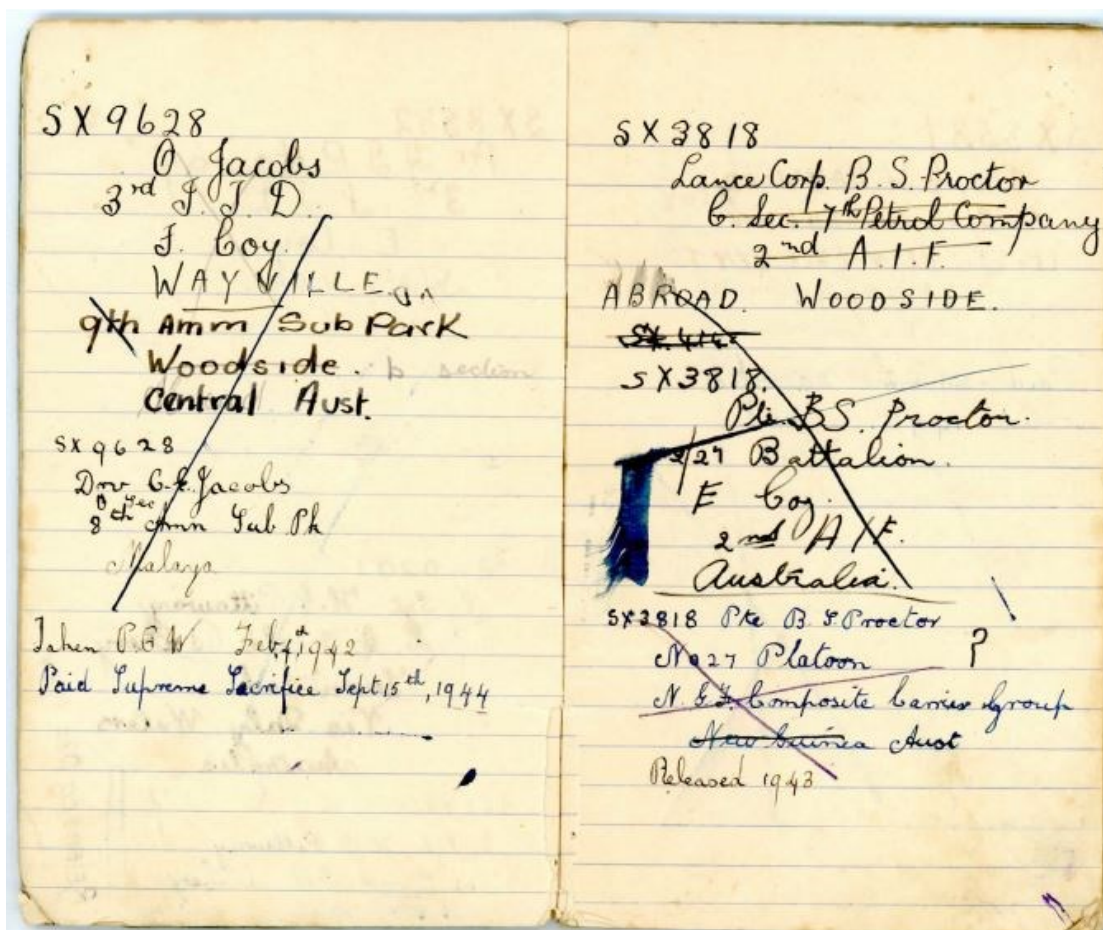 SX9628
O Jacobs
3rd T. T. D.
J. Coy.
WAYVILLE
9th Amm Sub Park
Woodside.
Central Aust.
SX9628
Drv C. Jacobs
Sec
8th Amn Sub Pk
Malaya
Taken P.O.W Feb, 1942
Paid Supreme Sacrifice Sept 15th, 1944
SX3818
Lance Corp. B. S. Proctor
C. Sec. 7th Petrol Company
2nd A.I.F.
ABROAD. WOODSIDE.
SX3818.
Pte. B.S. Proctor.
2/27 Battalion.
E Coy.
2nd A I F.
Australia.
SX3818 Pte B S Proctor
No 27 Platoon ?
N. G. F. Composite Carrier Group
New Guinea Aust
Released 1943